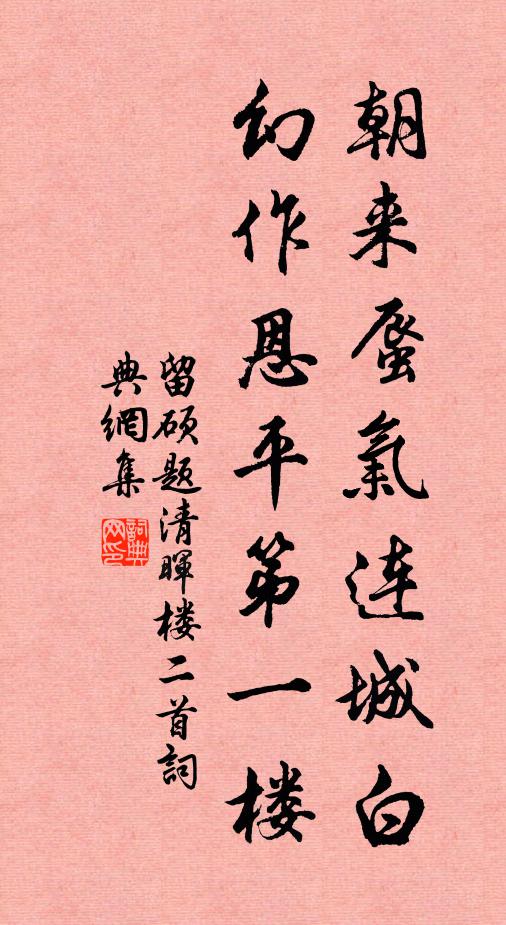 朝来蜃氣连城白
幻作恩平第一楼
留硕题清暉楼二首詞
典網集
詞典网印